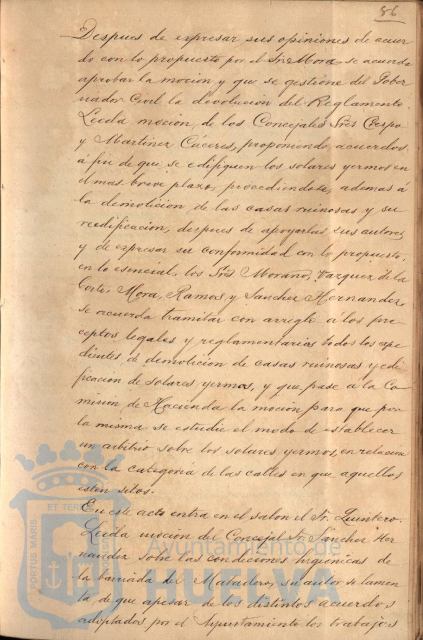 86
Despues de espresar sus opiniones de acuer
do con lo propuesto por el Sr. Mora se acuerda
aprobar la mocion y que se gestione del Gober
nador Civil la devolucion del Reglamento.
Leida mocion de los Concejales Sres Crespo
y Martinez Cáceres, proponiendo acuerdos,
á fin de que se edifiquen los solares yermos en
el mas breve plazo, procediendose, ademas á
la demolicion de las casas ruinosas y su
reedificacion, despues de apoyarla sus autores
y de espresar su conformidad con lo propuesto,
en lo esencial, los Sres Morano, Vazquez de la
Corte, Mora, Ramos, y Sanchez Hernandez,
se acuerda tramitar con arreglo á los pre
ceptos legales y reglamentarios todos los espe
dientes de demolicion de casas ruinosas y edi
ficacion de solares yermos, y que pase á la Co
mision de Hacienda la mocion para que por
la misma se estudie el modo de establecer
un arbitrio sobre los solares yermos en relacion
con la categoria de las calles en que aquellos
esten sitos.
En este acto entra en el salon el Sr. Quintero.
Leida mocion del Concejal Sr. Sanchez Her
nandez sobre las condiciones higienicas de
la barriada del Matadero, su autor se lamen
ta de que apesar de los distintos acuerdos
adoptados por el Ayuntamiento los trabajos
PORTUS MARIS ET TERR
Ayuntamiento de
HUELVA